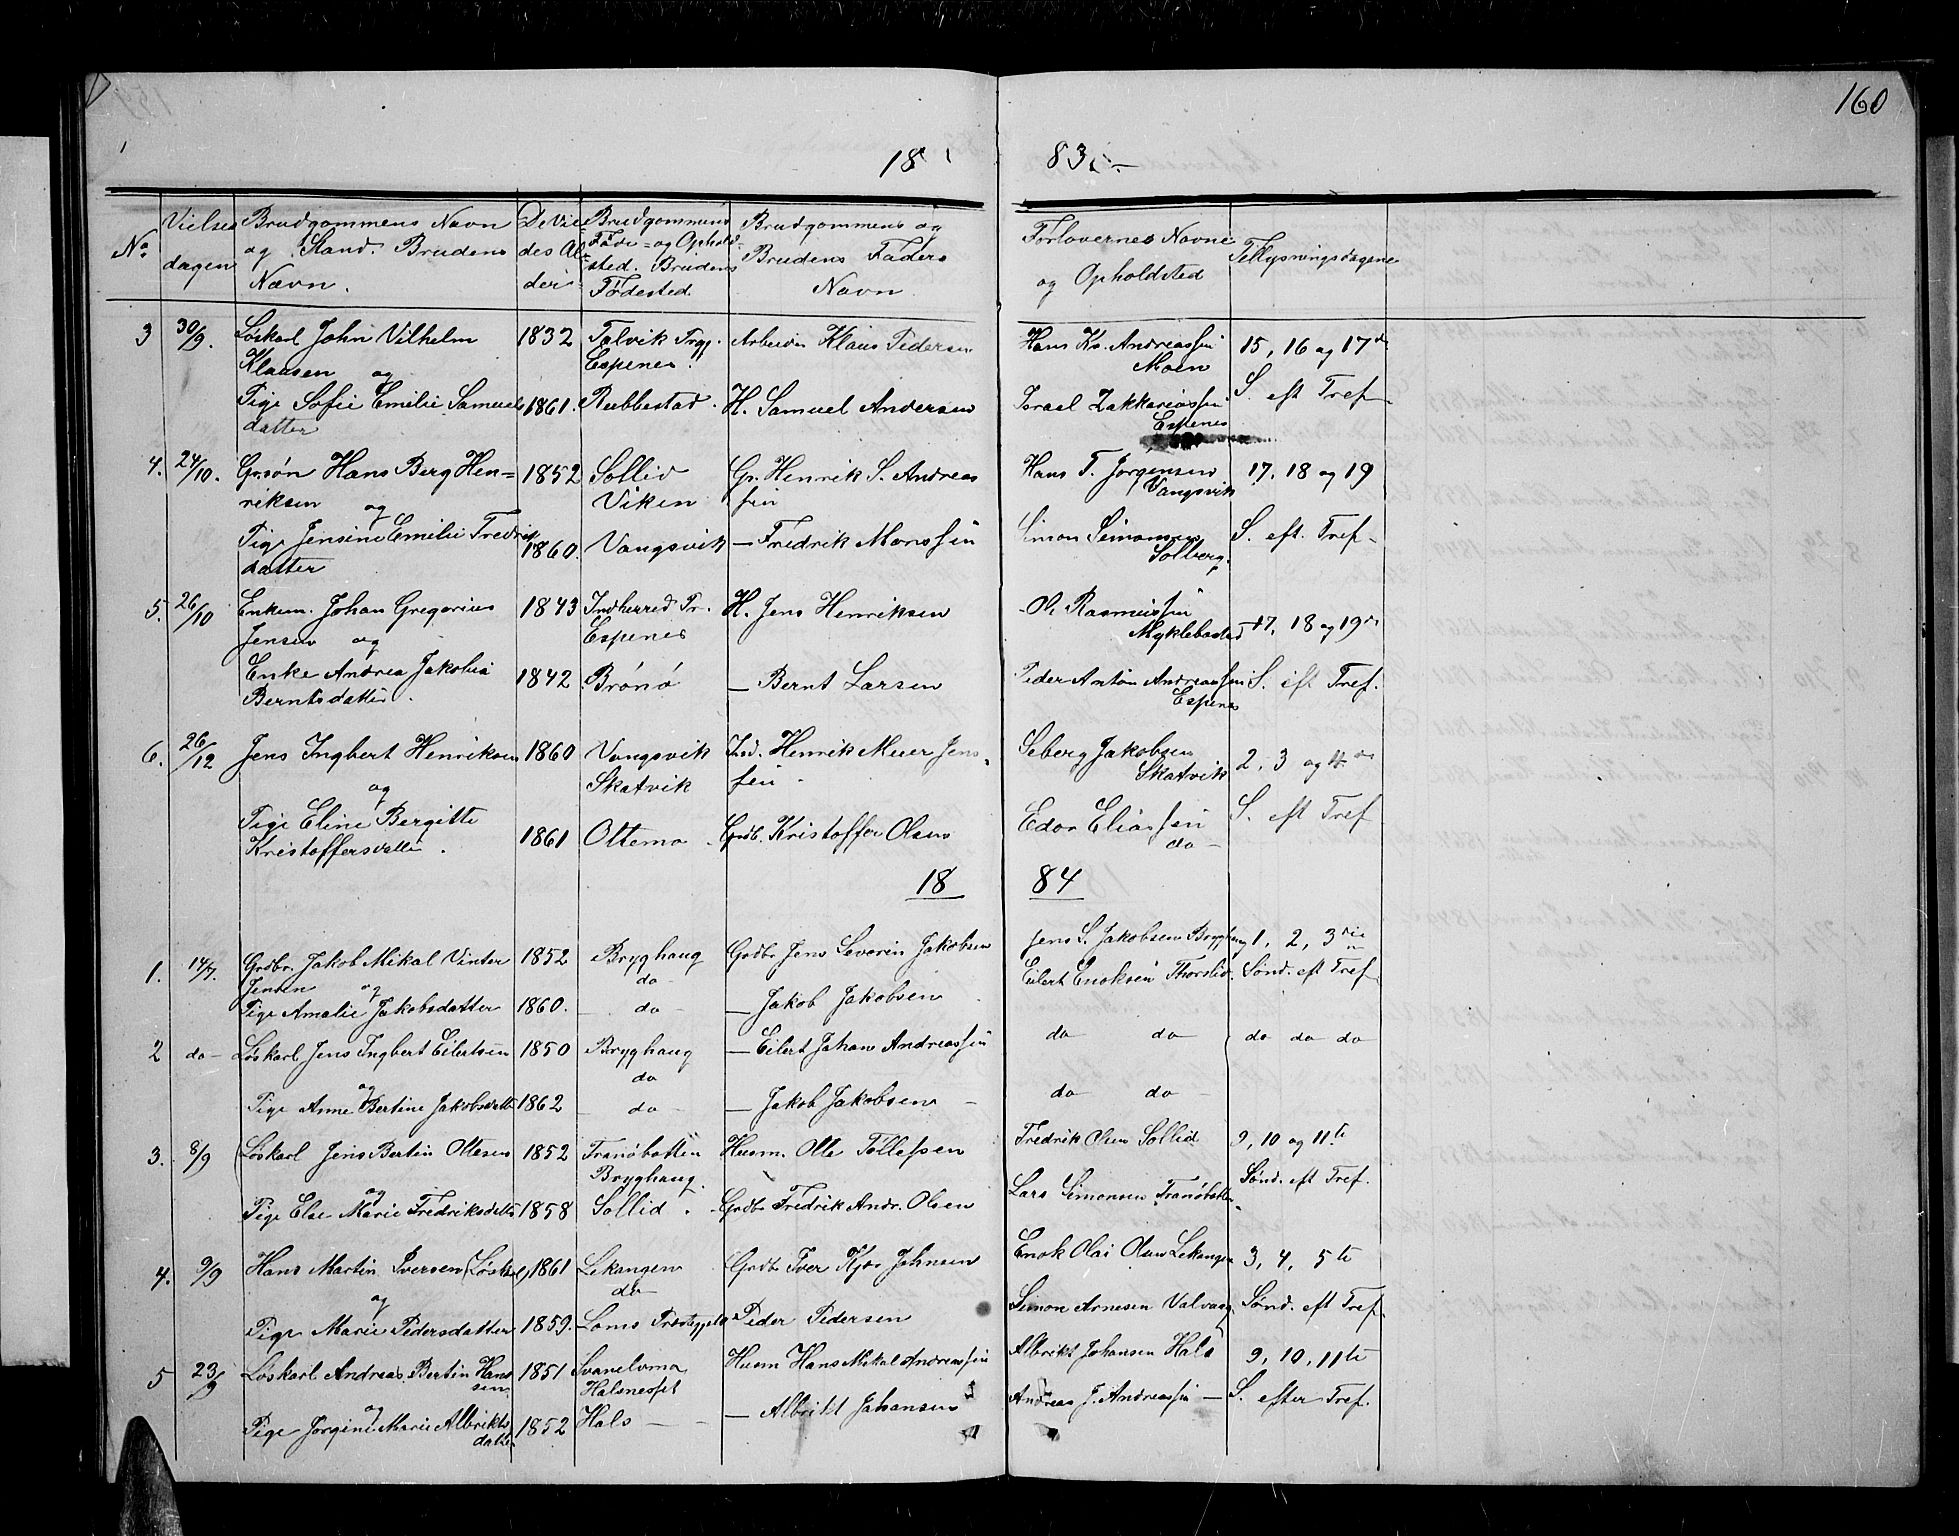 160
18 83.
No
Vielses
dagen
Brudgommens Navn
og Stand. Brudens
Navn.
De Vie-
des Al-
der
Brudgommens
Føde- og Ophold-
sted. Brudens
Fødested.
Brudgommens og
Brudens Faders
Navn
Forlovernes Navne
og Opholdsted
Tillysningsdagene
3 30/9. Løskarl John Vilhelm 1832 Talvik Prgj. Arbeider Klaus Pedersen Hans Kr. Andreassen 15, 16 og 17de
Klausen og Espenes. Moen
Pige Sofie Emilie Samuels 1861. Rubbestad. H. Samuel Andersen Israel Zakkariassen S. eft Tref.
datter Espenes
4. 24/10. Gr.søn Hans Berg Hen= 1852 Sollid Gr. Henrik S. Andreas Hans T. Jørgensen 17, 18 og 19
riksen og Viken sen Vangsvik
Pige Jensine Emilie Fredrik 1860. Vangsvik — Fredrik Monssen Simon Simonsen S. eft. Tref.
datter Solberg.
5. 26/10 Enkem. Johan Gregorius 1843 Indherred Pr. H. Jens Henriksen Ole Rasmussen 17, 18 og 19de
Jensen og Espenes Myklebostad
Enke Andrea Jakobia 1842 Brønø — Bernt Larsen Peder Anton Andreassen S. eft Tref.
Berntsdatter. Espenes
6. 26/12 Jens Ingbert Henriksen 1860 Vangsvik Ind. Henrik Meier Jens Seberg Jakobsen 2, 3 og 4de
og Skatvik sen. Skatvik
Pige Eline Bergitte 1861 Ottemo Grdb. Kristoffer Olsen Edor Eliassen S. eft Tref
Kristoffersdatter. do
18 84
1. 14/7. Grdbr. Jakob Mikal Vinter 1852 Bryghaug Grdbr Jens Severin Jakobsen Jens S. Jakobsen Bryghaug 1, 2, 3die
Jensen og do Eilert Enoksen Thorslid. Sønd. eft Tref.
Pige Amalie Jakobsdatter 1860. do — Jakob Jakobsen
2 do— Løskarl Jens Ingbert Eilertsen 1850 Bryghaug — Eilert Johan Andreassen do do do do do
og do
Pige Anne Bertine Jakobsdatt 1862 do — Jakob Jakobsen — do do
3. 8/9 Løskarl Jens Bertin Ottesen 1852 Tranøbotten Husm. Otte Tollefsen Fredrik Olsen Sollid 9, 10 og 11te
og Bryghaug. Sønd. eft Tref.
Pige Else Marie Fredriksdatt 1858 Sollid. Grdbr Fredrik Andr. Olsen Lars Simonsen Tranøbotten
4. 9/9 Hans Martin Iversen (Løskarl) 1861 Lekangen Grdbr Iver Kjøs Johnsen Enok Olai Olsen Lekangen 3, 4, 5te
og do
Pige Marie Pedersdatter 1859. Loms Præstegjeld Peder Pedersen Simon Arnesen Valvaag Sønd. eft Tref.
5 23/9 Løskarl Andreas Bertin Hans 1851 Svanelvmo Husm Hans Mikal Andreassen Albrikt Johansen Hals 9, 10, 11te
sen Halsnesset
og
Pige Jørgine Marie Albrikts 1852 Hals — — Albrikt Johansen Andreas J. Andreassen — S. efter Tref.
datter